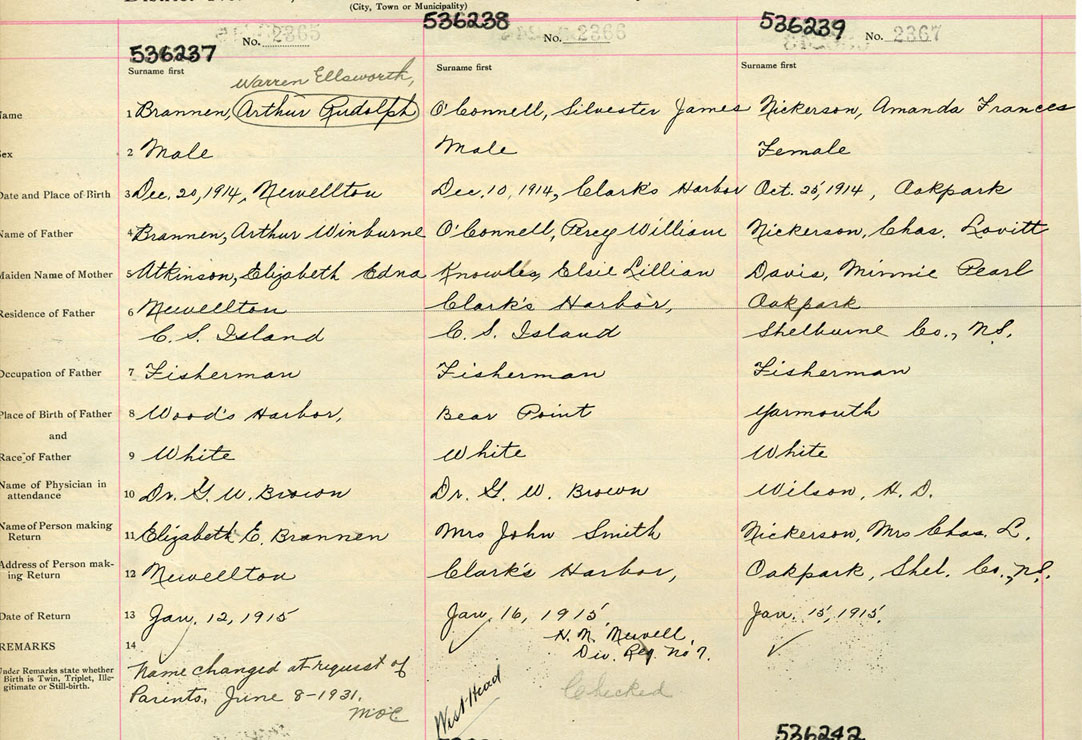 (City, Town or Municipality)
536237 No. 2365
536238 No. 2366
536239 No. 2367
Surname first Surname first Surname first
Warren Ellsworth,
ame 1 Brannen, Arthur Rudolph O'Connell, Silvester James Nickerson, Amanda Frances
ex 2 Male Male Female
Date and Place of Birth 3 Dec. 20, 1914, Newellton Dec. 10, 1914, Clark's Harbor Oct. 25, 1914, Oakpark
Name of Father 4 Brannen, Arthur Winburne O'Connell, Percy William Nickerson, Chas. Lovitt
Maiden Name of Mother 5 Atkinson, Elizabeth Edna Knowles, Elsie Lillian Davis, Minnie Pearl
Residence of Father 6 Newellton Clark's Harbor, Oakpark
C. S. Island C. S. Island Shelburne Co., N.S.
Occupation of Father 7 Fisherman Fisherman Fisherman
Place of Birth of Father 8 Wood's Harbor, Bear Point Yarmouth
and
Race of Father 9 White White White
Name of Physician in
attendance 10 Dr. G. W. Brown Dr. G. W. Brown Wilson, H. D.
Name of Person making
Return 11 Elizabeth E. Brannen Mrs John Smith Nickerson, Mrs Chas. L.
Address of Person mak-
ing Return 12 Newellton Clark's Harbor, Oakpark, Shel. Co., N.S.
Date of Return 13 Jan. 12, 1915 Jan. 16, 1915 Jan. 15, 1915
REMARKS 14
H. N. Newell,
Div. Reg. No 7.
Under Remarks state whether
Birth is Twin, Triplet, Ille-
gitimate or Still-birth.
Name changed at request of
Parents, June 8-1931.
West Head
Checked
536242